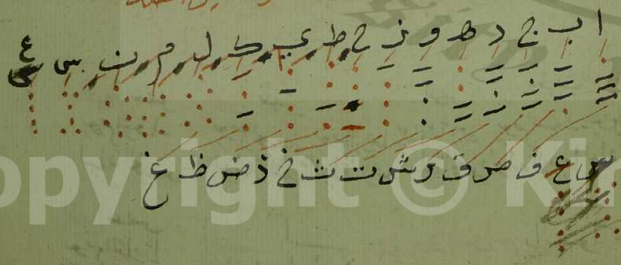 ا ب ج د ه و ز ح ط ي ك ل م ن س س ع
س ع ف ص ق ر ش ت ث خ ذ ض ظ غ
Copyright © Ki